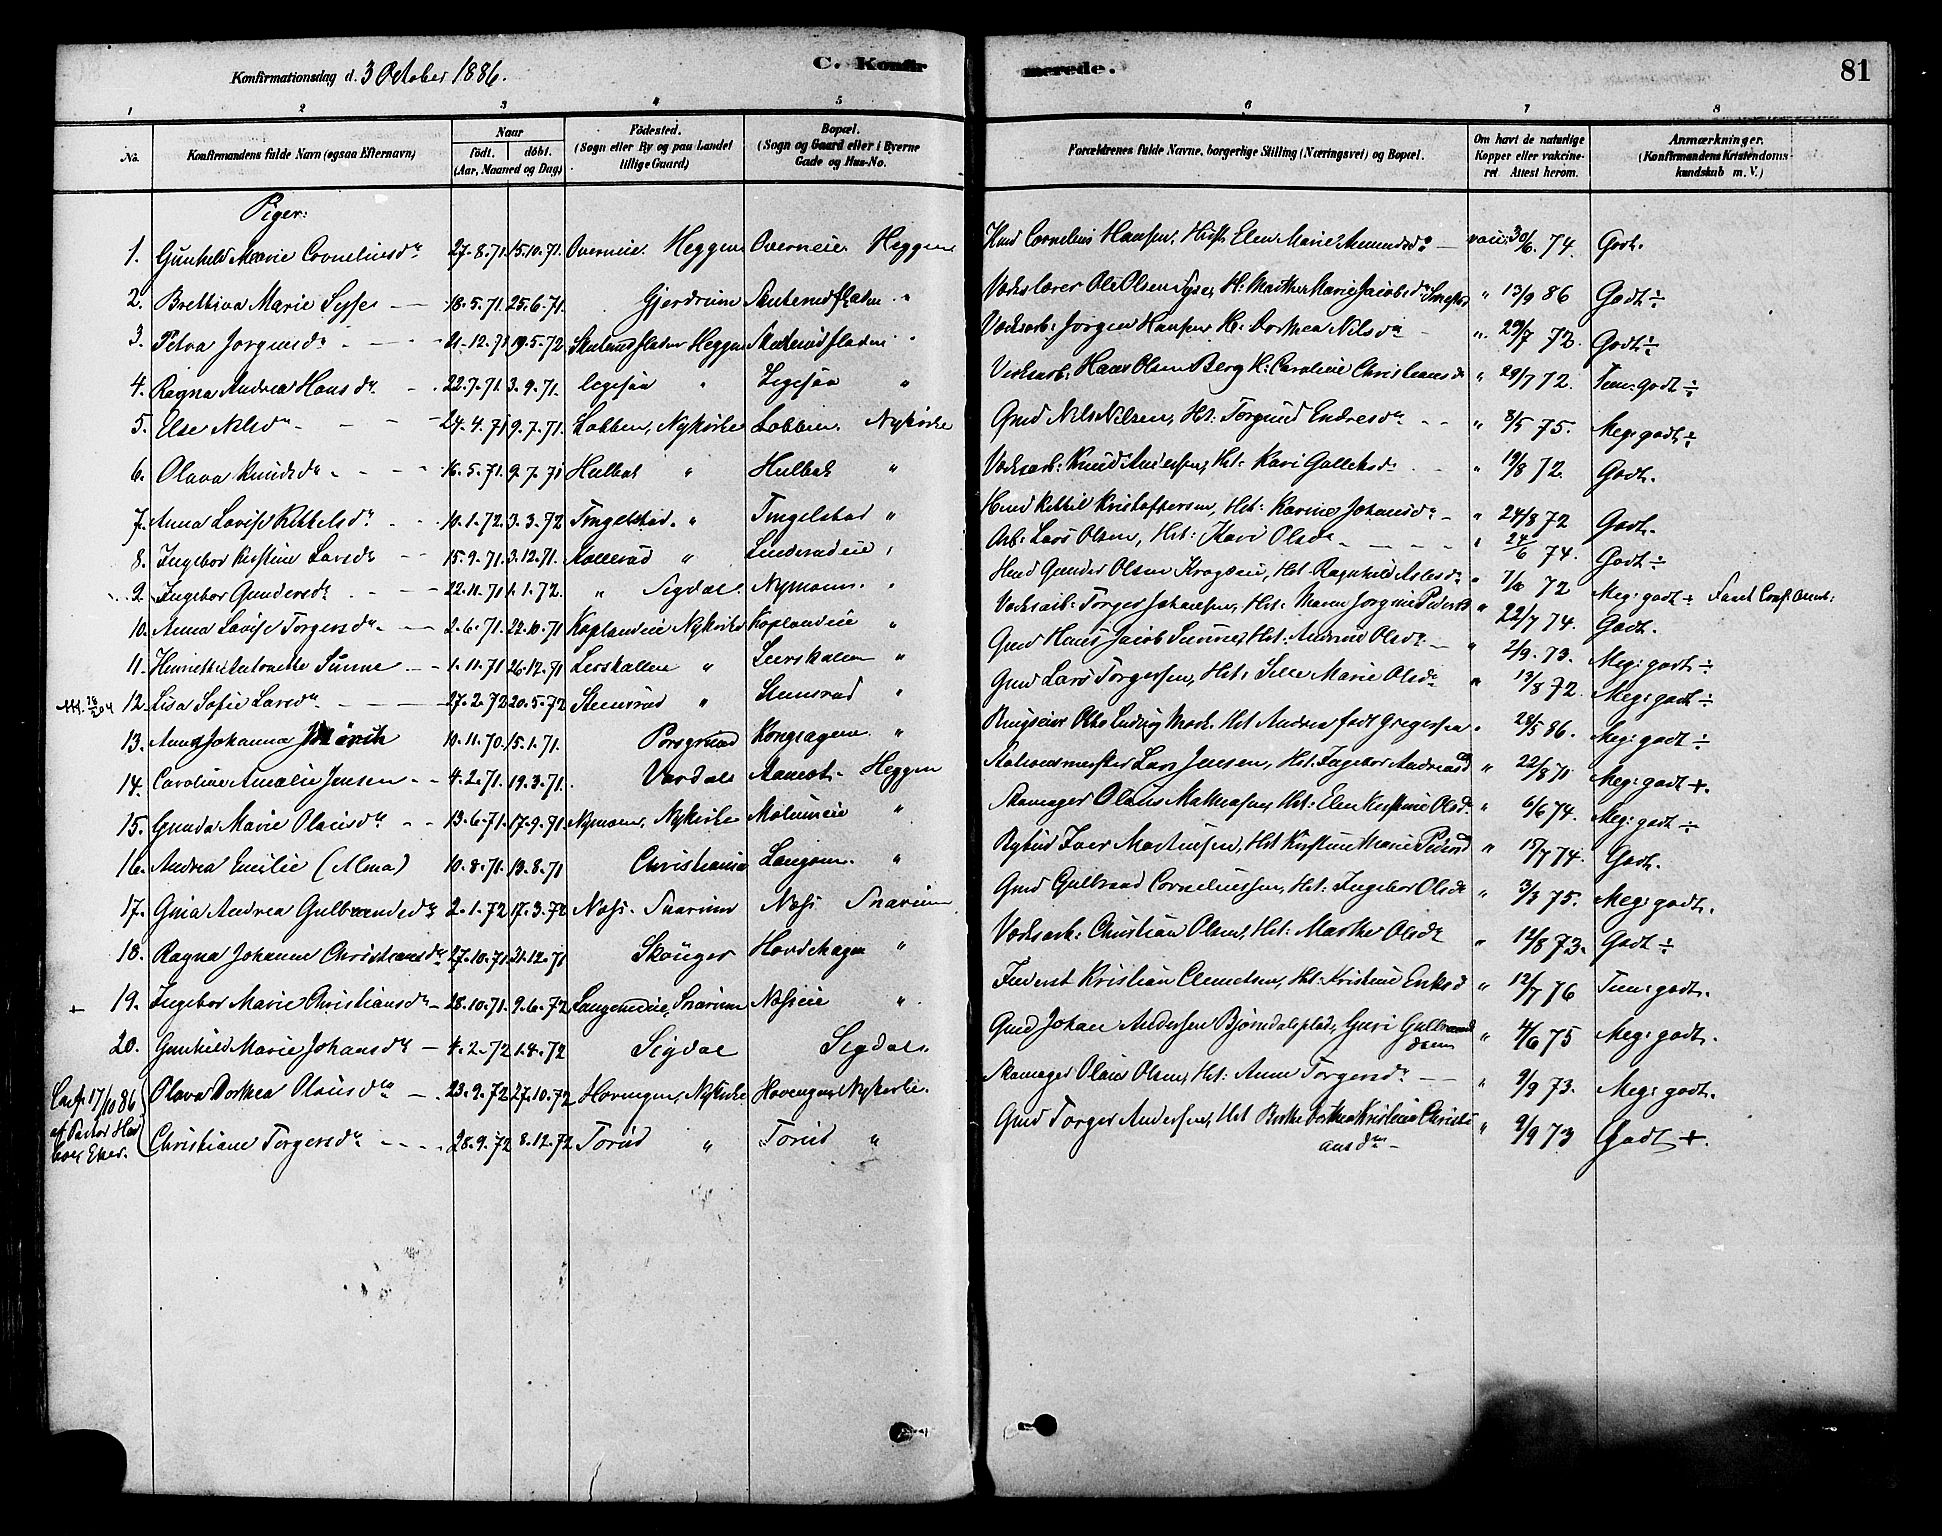 Konfirmationsdag d. 3 October 1886.
C. Konfirmerede.
81
1 2 3 4 5 6 7 8
No. Konfirmandens fulde Navn (ogsaa Efternavn) Naar født. døbt. (Aar, Maaned og Dag) Födested. (Sogn eller By og paa Landet tillige Gaard) Bopæl. (Sogn og Gaard eller i Byerne Gade og Hus-No. Forældrenes fulde Navne, borgerlige Stilling (Næringsvei) og Bopæl. Om havt de naturlige Kopper eller vakcineret Attest herom. Anmærkninger. (Konfirmandens Kristendomskundskab m. V.)
Piger:
1. Gunhild Marie Corneliusdr 27-8.71. 15.10.71. Overneie Heggen Overneie Heggen Hmd Cornelius Hansen, Hustr. Elen Marie Amundsdr — vac: 30/6. 74. Godt.
2. Brettiva Marie Sysse — 18.5.71. 25.6.71. Gjerdrum Skuterudflaten " Ole Olsen Syse, H: Marthe Marie Jacobsdr " 13/9 86 Godt ÷
3. Petra Jorgensdr 21.12.71 19.5.72 Skuterudflaten Heggen Skuterudflaten " Værksarb: Jorgen Hansen H: Dorthea Nilsdr " 29/7 72. Godt ÷
4. Ragna Andrea Hansdr 22.7.71. 3.9.71. " " Værksarb: Hans Olsen Berg H: Caroline Christiansdr " 29/7 72. Tem: Godt ÷
5. Else Nilsdr 24.4.71 9.7.71. Lobben, Nykirke Lobben, Nykirke Gmd Nils Nilsen, Hst: Torgund Endresdr " 8/5 75. Meg: godt ÷
6. Olava Knudsdr 16.5.71. 9.7.71 Hulbak " Hulbak " Værksarb: Knud Andersen, Hst: Kari Gulleksdr " 19/8 72. Godt.
7. Anna Lovise Kittelsdr 10.1.72. 3.3.72 Tingelstad " Tingelstad " Hmd Kittil Kristoffersen, Hst: Karine Johansdr " 24/8 72 Godt.
8. Ingebor Kirstine Larsdr 15.9.71. 3.12.71. Kollerud " " Arb: Lars Olsen, Hst: Kari Olsdr " 24/6 74. Godt ÷
9. Ingebor Gundersdr 22.11.71 1.1.72. " Sigdal. Nymoen " Hmd Gunder Olsen, Hst. Ragnhild Aslesdr " 72 Meg: godt ÷
10. Anna Lovise Torgersdr 2.6.71. 22.10.71 Koplandeie Nykirke Koplandeie " Værksarb: Torger Johansen, Hst: Maren Jorgine Pedersdr " 22/7 74. Godt.
11. Henriette Antonette Sünne 1.11.71 26.12.71 Leerskallen " Leerskallen " Gmd Hans Jacob Sunne, Hst: Olsdr " 2/9. 73. Meg: godt ÷
12. Lisa Sofie Larsdr 27.2.72 20.5.72 Stensrud " Stensrud " Gmd Lars Torgersen, Hst: Sille Marie Olsdr " 13/8 72. Meg: godt ÷
13. Anna Johanna Mörch 10.11.70. 15.1.71. Porsgrund Kongsagene " Otto Ludvig Mørk. Hst Andrea født Gregersen " 28/5 86. Meg: godt ÷
14. Caroline Amalie Jensen 4.2.71. 19.3.71. Vardal Aamot Heggen Stationsmester Lars Jensen, Hst: Ingebor Andreasd " 22/8 71 Meg: godt +.
15. Gunda Marie Olausdr 13.6.71. 17.9.71. Nymoen, Nykirke " Skomager Olaus Mathiesen, Hst: Elen Kirstine Olsdr " 6/6 74. Meg: godt ÷
16. Andrea Emilie (Alma) 10.8.71. 13.8.71 Christiania Langerud " Iver Martinsen, Hst Kirstine Marie Pedersd " 15/7 74. Godt.
17. Gina Andrea Gulbrandsdr 2.1.72 17.3.72 Næss. Snarum Næss Snarum. Gmd Gulbrand Corneliussen, Hst: Ingebor Olsdr " 3/3 75. Meg: godt.
18. Ragna Johanne Christiansdr 27.10.71 21.12.71 Skouger Hovdehagen " Værksarb: Christian Olsen, Hst: Marthe Olsdr " 12/8 73. Godt ÷
+ 19. Ingebor Marie Christiansdr 28.10.71. 9.6.72 Langerudeie, Snarum Næsseie " Inderst Kristian Clemetsen, Hst: Kristine Eriksd " 12/7 76 Tem: godt.
20. Gunhild Marie Johansdr 4.2.72 1.4.72 Sigdal Sigdal. Gmd Johan Andersen Bjørndalsplads, Guri Gulbrandsdatter " 4/6 75 Meg: godt.
Conf. 17/10 86 af Pastor Eker. Olava Dorthea Olausdr 23.9.72 27.10.72 Hovengen, Nykirke Hovengen Nykirke. Skomager Olaus Olsen, Hst: Anne Torgersdr " 9/9 73. Meg: godt.
Christiane Torgersdr 28.9.72 8.12.72 Torud " Torud " Gmd Torger Andersen, Hst Berthe Dorthea Kristine Christiansdr " 9/9 73 Godt +.